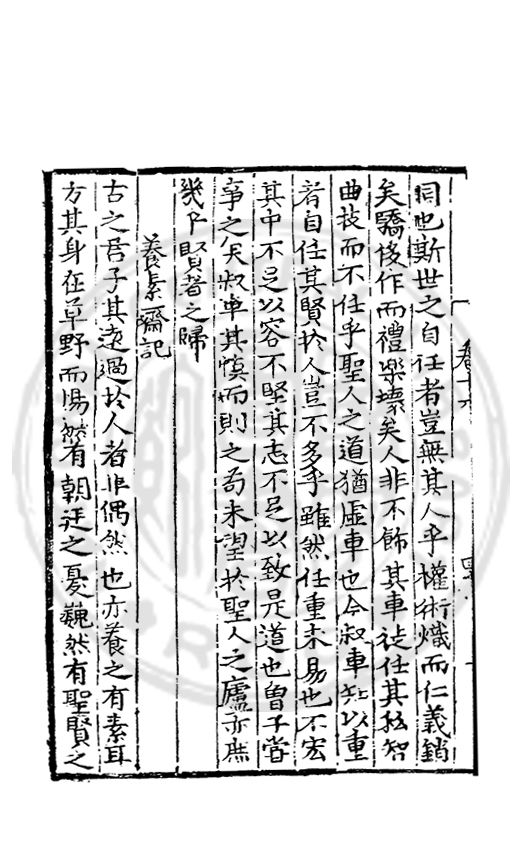 同也斯世之自任者豈無其人乎權術熾而仁義銷
矣驕侈作而禮樂壞矣人非不飾其車徒任其私智
曲技而不任乎聖人之道猶虛車也今叔車知以重
者自任其賢於人豈不多乎雖然任重未易也不宏
其中不足以容不堅其志不足以致是道也曾子嘗
事之矣叔車其慎而則之苟未望於聖人之廬亦庶
幾乎賢者之歸
養素齋記
古之君子其遠過於人者非偶然也亦養之有素耳
方其身在草野而惕然有朝廷之憂巍然有聖賢之
卷十六